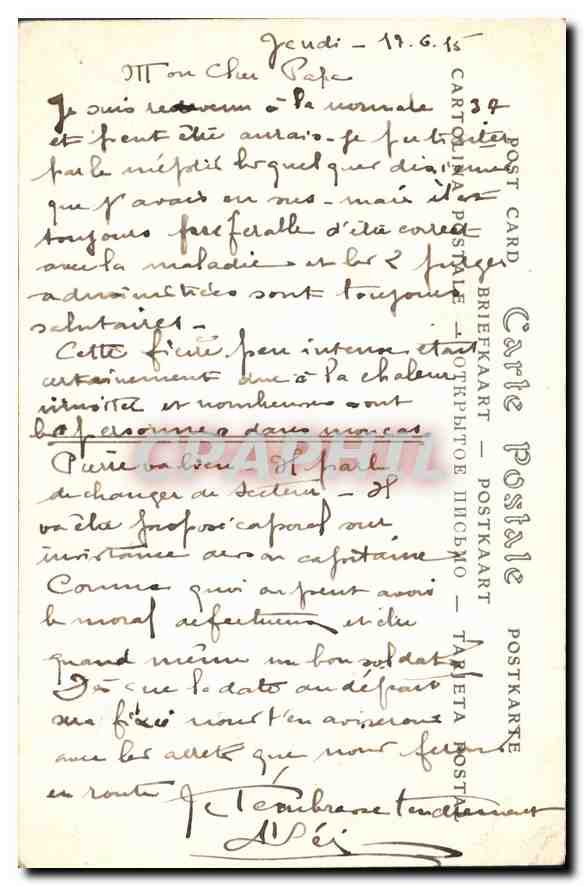 Jeudi - 17.6.15
Mon Cher Papa
Je suis redevenu à la normale 37
et peut être aurais-je pu
par le mépris les quelques dixièmes
que j'avais en sus - mais il est
toujours préférable d'être correct
avec la maladie et les 2 purges
administrées sont toujours
salutaires -
Cette fièvre peu intense était
certainement due à la chaleur
et nombreuses sont
les personnes dans mon cas
Pierre va bien - Il parle
de changer de secteur - Il
va être proposé caporal sur
insistance de son capitaine
Comme quoi on peut avoir
le moral défectueux et être
quand même un bon soldat
Dès que la date du départ
sera fixée nous t'en aviserons
avec les arrêts que nous ferons
en route
Je t'embrasse tendrement
Carte Postale
POST CARD
POSTKARTE
BRIEFKAART — POSTKAART
CARTOLINA POSTALE — ОТКРЫТОЕ ПИСЬМО — TARJETA POSTAL
CPAPHIL